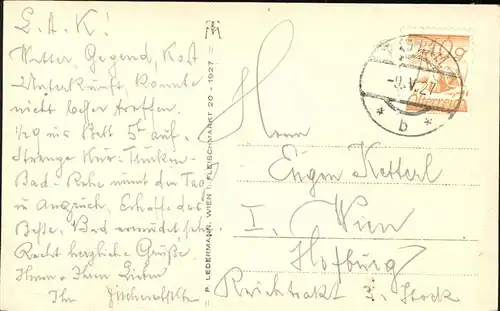 L. A. K!
Wetter, Gegend, Kost
Unterkunft, konnte
nicht besser treffen.
1/2 9 ins Bett 5h auf.
Strenge Kur: Trinken-
Bad-Ruhe nimmt den Tag
in Anspruch. Erhoffe das
Beste. Bad ermüdet sehr.
Recht herzliche Grüße
Ihnen u Ihren Lieben
Ihr
P. LEDERMANN, WIEN I. FLEISCHMARKT 20 - 1927
Herrn
Eugen Ketterl
I, Wien
Hofburg
Reichstrakt 2. Stock
-9.V.27
* b *